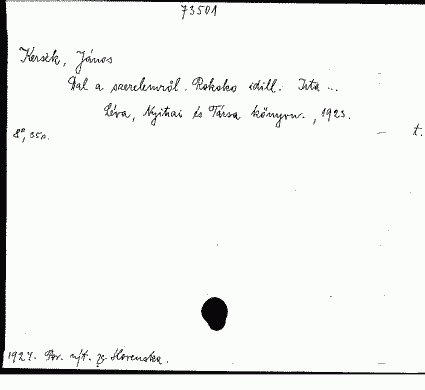 73501
Kersék, János
Dal a szerelemről. Rokoko idill. Irta ...
Léva, Nyitrai és Társa könyvny., 1923.
8°, 35 p. t.
1927. Pov. nyt. Slovenska.